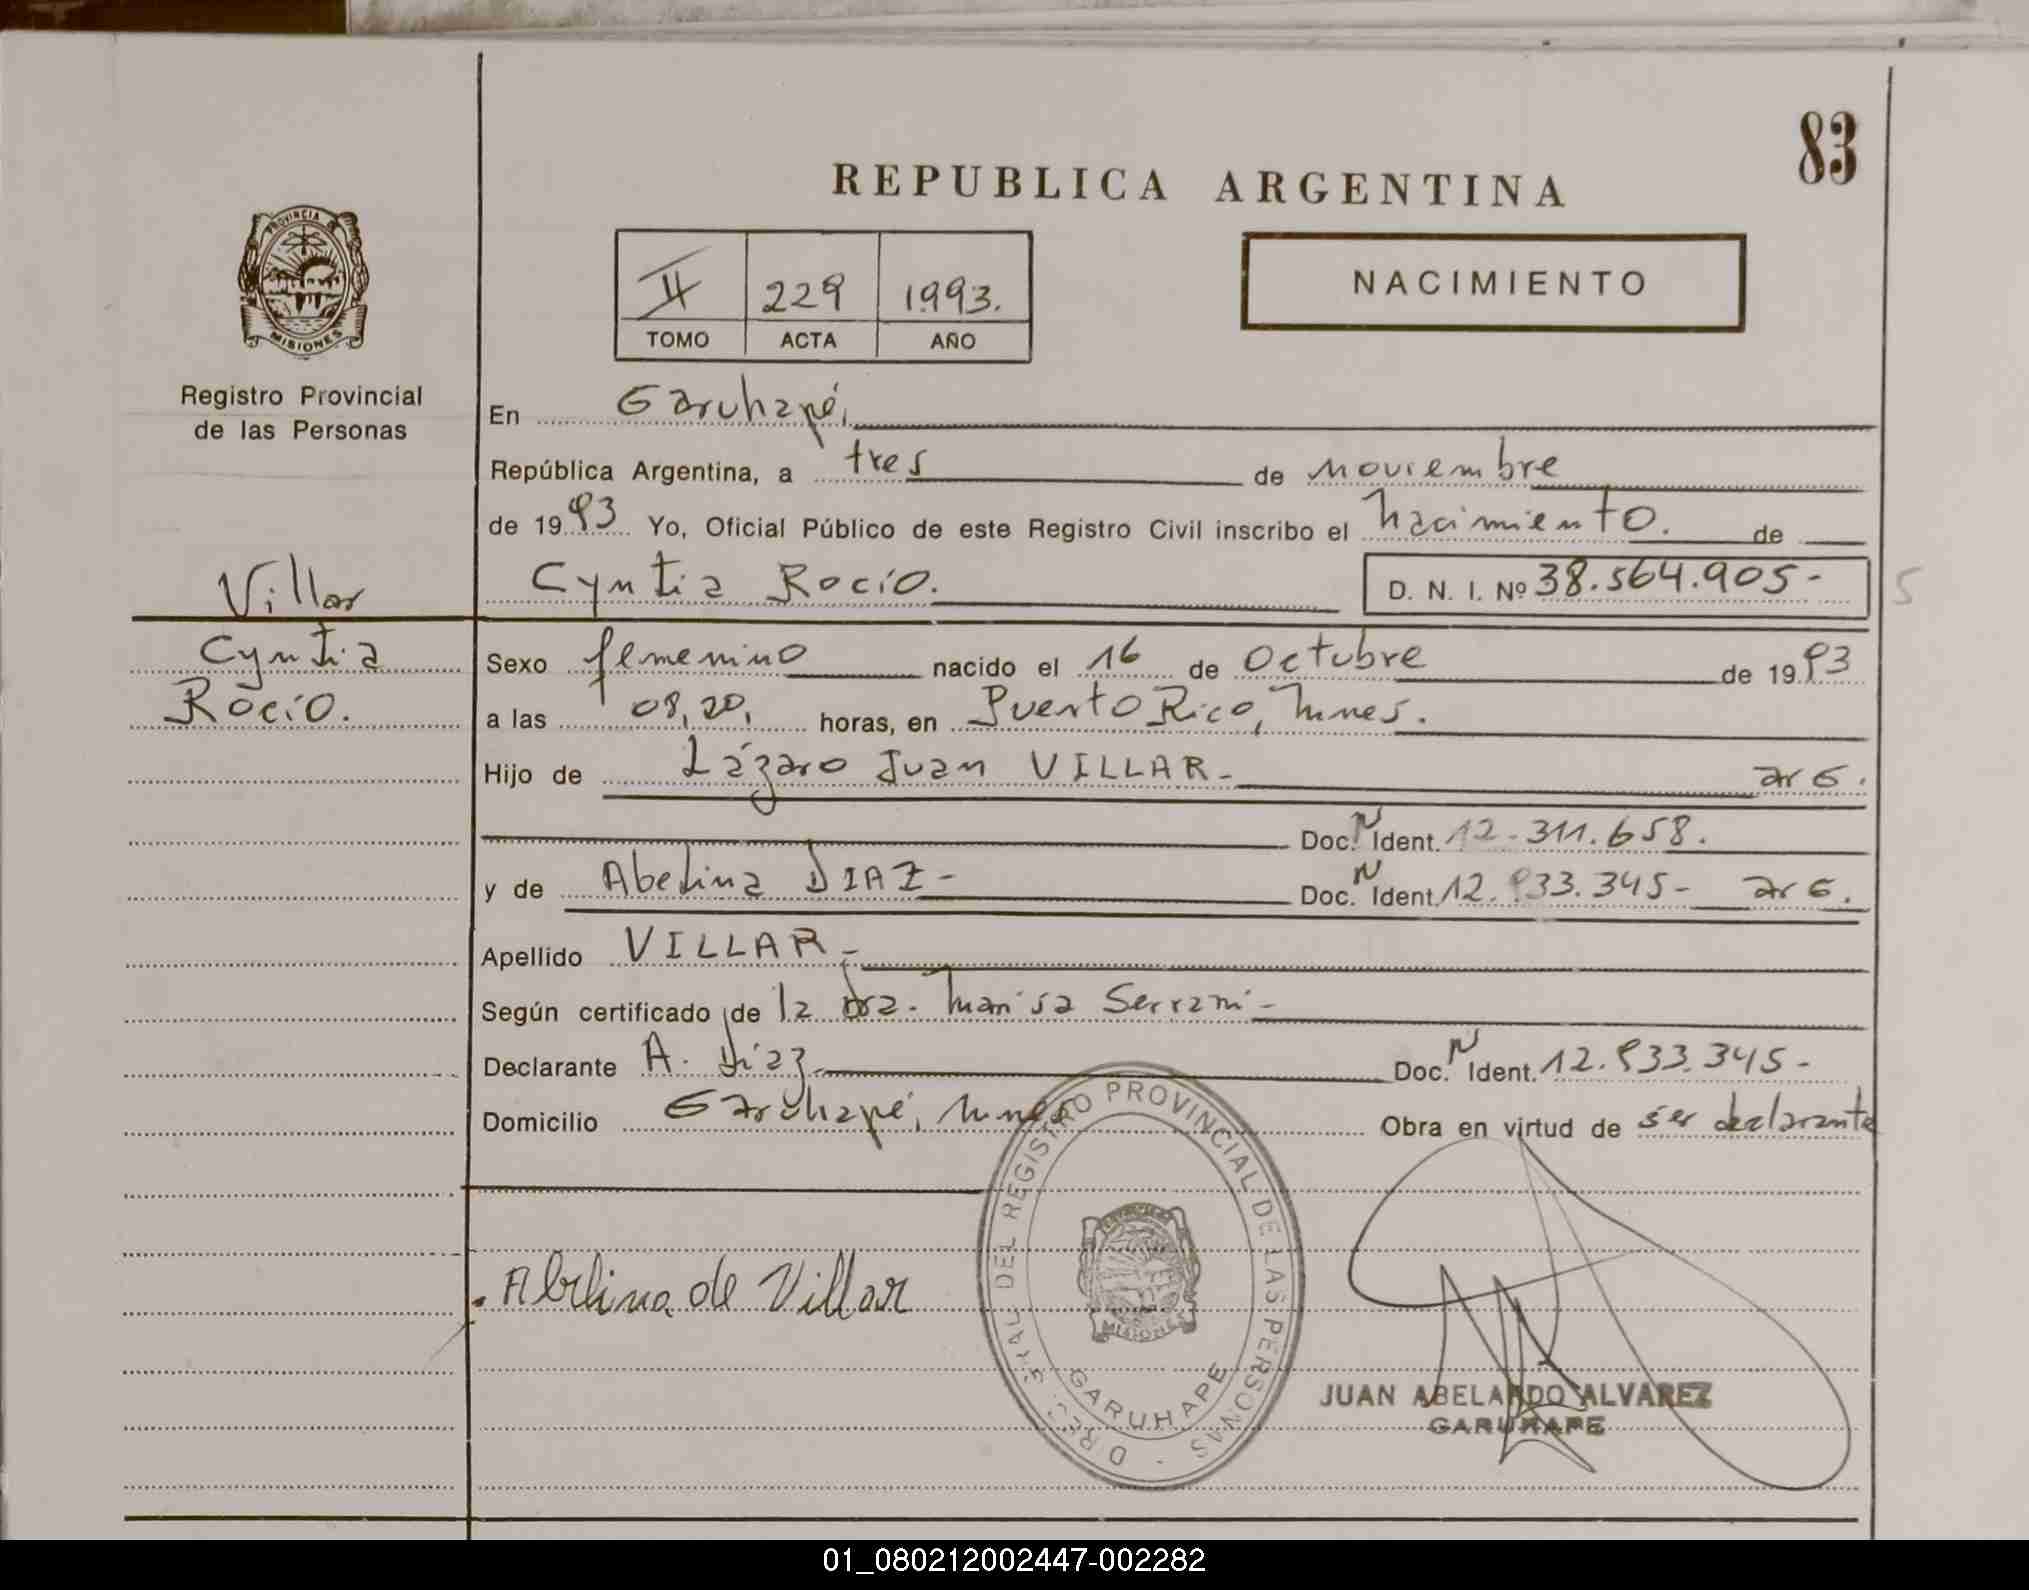 83
REPUBLICA ARGENTINA
PROVINCIA DE
MISIONES
Registro Provincial
de las Personas
II 229 1993.
TOMO ACTA AÑO
NACIMIENTO
En Garuhapé,
República Argentina, a tres de noviembre
de 1993 Yo, Oficial Público de este Registro Civil inscribo el nacimiento. de
Cyntia Rocío. D. N. I. Nº 38.564.905-
5
Villar
Cyntia
Rocío.
Sexo femenino nacido el 16 de Octubre de 1993
a las 08,20, horas, en Puerto Rico, Mnes.
Hijo de Lázaro Juan VILLAR- arg.
Doc. N Ident. 12.311.658.
y de Abelina DIAZ- Doc. N Ident. 12.933.345- arg.
Apellido VILLAR-
Según certificado de la Dra. Marisa Serrani-
Declarante A. Díaz Doc. N Ident. 12.933.345-
Domicilio Garuhapé, Mnes Obra en virtud de ser declarante
Abelina de Villar
DIREC. GRAL DEL REGISTRO PROVINCIAL DE LAS PERSONAS -
MISIONES
GARUHAPE
JUAN ABELARDO ALVAREZ
GARUHAPE
01_080212002447-002282